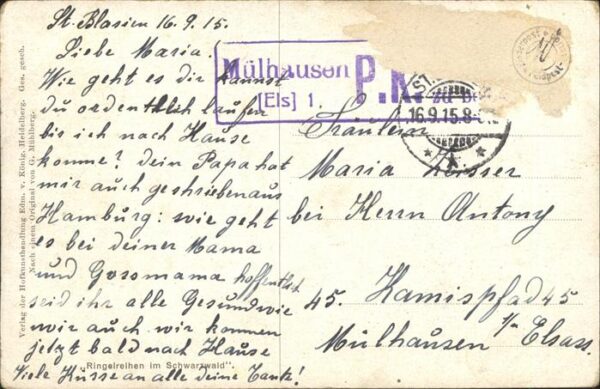 St. Blasien 16.9.15.
Liebe Maria.
Wie geht es dir kannst
du ordentlich laufen
bis ich nach Hause
komme? dein Papa hat
mir auch geschrieben aus
Hamburg: wie geht
es bei deiner Mama
und Gorsmama hoffentlich
seid ihr alle Gesund wie
wir auch wir kommen
jetzt bald nach Hause
Viele Küsse an alle deine Tante!
Mülhausen
[Els] 1.
P.K.
16.9.15.8-
Fräulein
Maria
bei Herrn Antony
45. Kamispfad 45
Mülhausen i/a Elsass.
Verlag der Hofkunsthandlung Edm. v. König, Heidelberg. Ges. gesch.
Nach einem Original von G. Mühlberg.
"Ringelreihen im Schwarzwald".